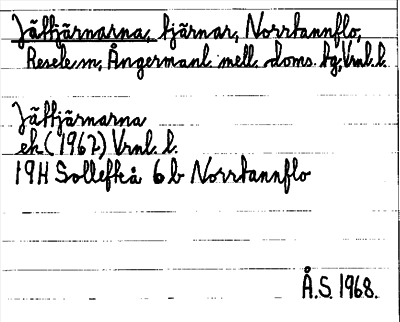 Jättjärnarna, tjärnar, Norrtannflo,
Resele sn, Ångermanl. mell. doms. tg, Vrnl. l.
Jättjärnarna
ek. (1962) Vrnl. l.
19H Sollefteå 6 b Norrtannflo
Å.S. 1968.